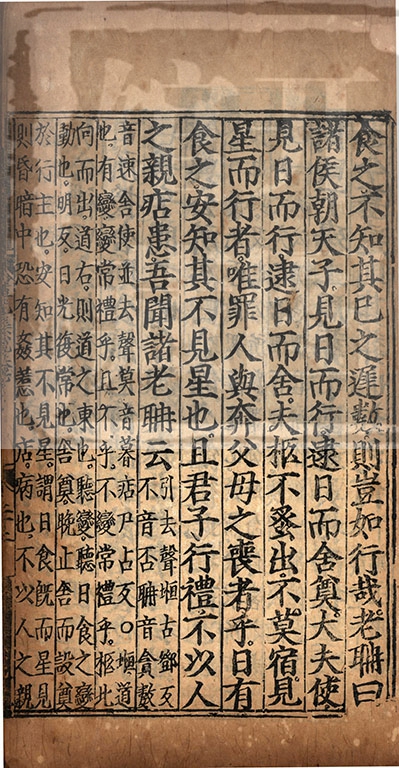 食之不知其已之遲數則豈如行哉老聃曰
諸侯朝天子見日而行逮日而舍奠大夫使
見日而行逮日而舍夫柩不蚤出不莫宿見
星而行者唯罪人與奔父母之喪者乎日有
食之安知其不見星也且君子行禮不以人
之親痁患吾聞諸老聃云
引去聲堩古鄧反
不音否聃音貪數
音速舍使並去聲莫音慕痁尸占反○堩道
也有變變常禮乎且不乎不變常禮乎柩北
向而出道右則道之東也聽變聽日食之變
動也明反日光復常也舍奠晚止舍而設奠
於行主也安知其不見星謂日食既而星見
則昏暗中恐有姦慝也痁病也不以人之親